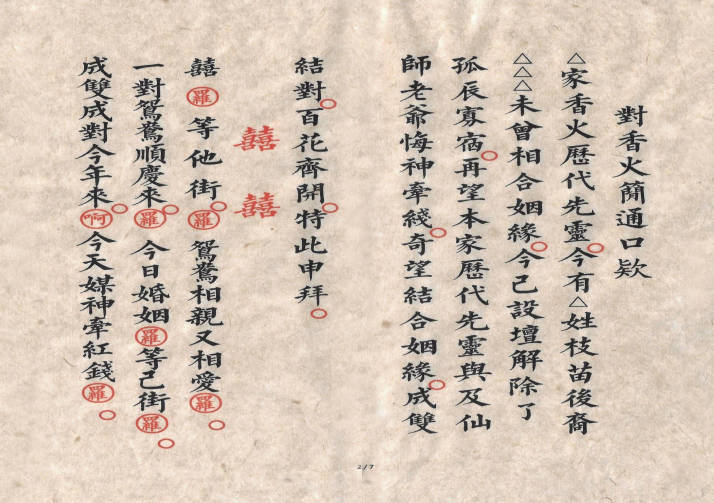 對香火簡通口欵
△家香火歷代先靈今有△姓枝苗後裔
△△△未曾相合姻緣今己設壇解除了
孤辰寡宿再望本家歷代先靈與及仙
師老爺悔神牽綫奇望結合姻緣成雙
結對百花齊開特此申拜
囍 囍
囍羅等他街羅鴛鴦相親又相愛羅
一對鴛鴦順慶來羅今日婚姻羅等己街羅
成雙成對今年來啊今天媒神牽紅錢羅
2/7